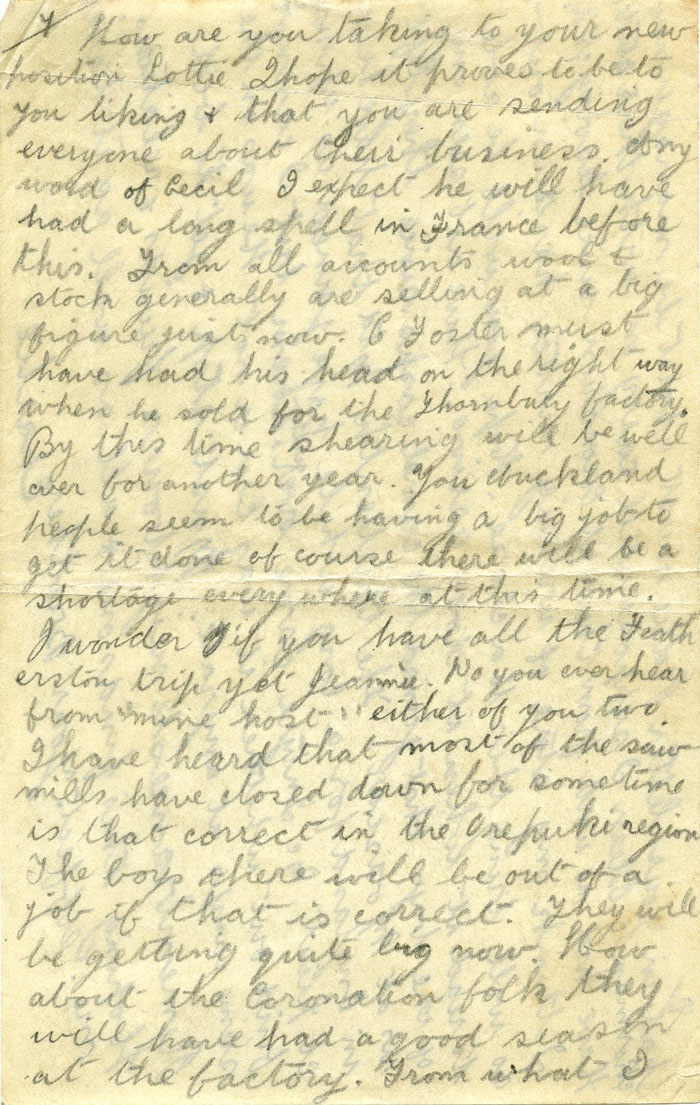 7 How are you taking to your new
position Lottie I hope it proves to be to
you liking & that you are sending
everyone about their business. Any
word of Cecil I expect he will have
had a long spell in France before
this. From all accounts wool &
stock generally are selling at a big
figure just now. C Foster must
have had his head on the right way
when he sold for the Thornbury factory.
By this time shearing will be well
over for another year. You Auckland
people seem to be having a big job to
get it done of course there will be a
shortage every where at this time.
I wonder if you have all the Feath
erston trip yet Jeannie. Do you ever hear
from "mine host" either of you two.
I have heard that most of the saw
mills have closed down for some time
is that correct in the Orepuki region
The boys there will be out of a
job if that is correct. They will
be getting quite big now. How
about the Coronation folk they
will have had a good season
at the factory. From what I